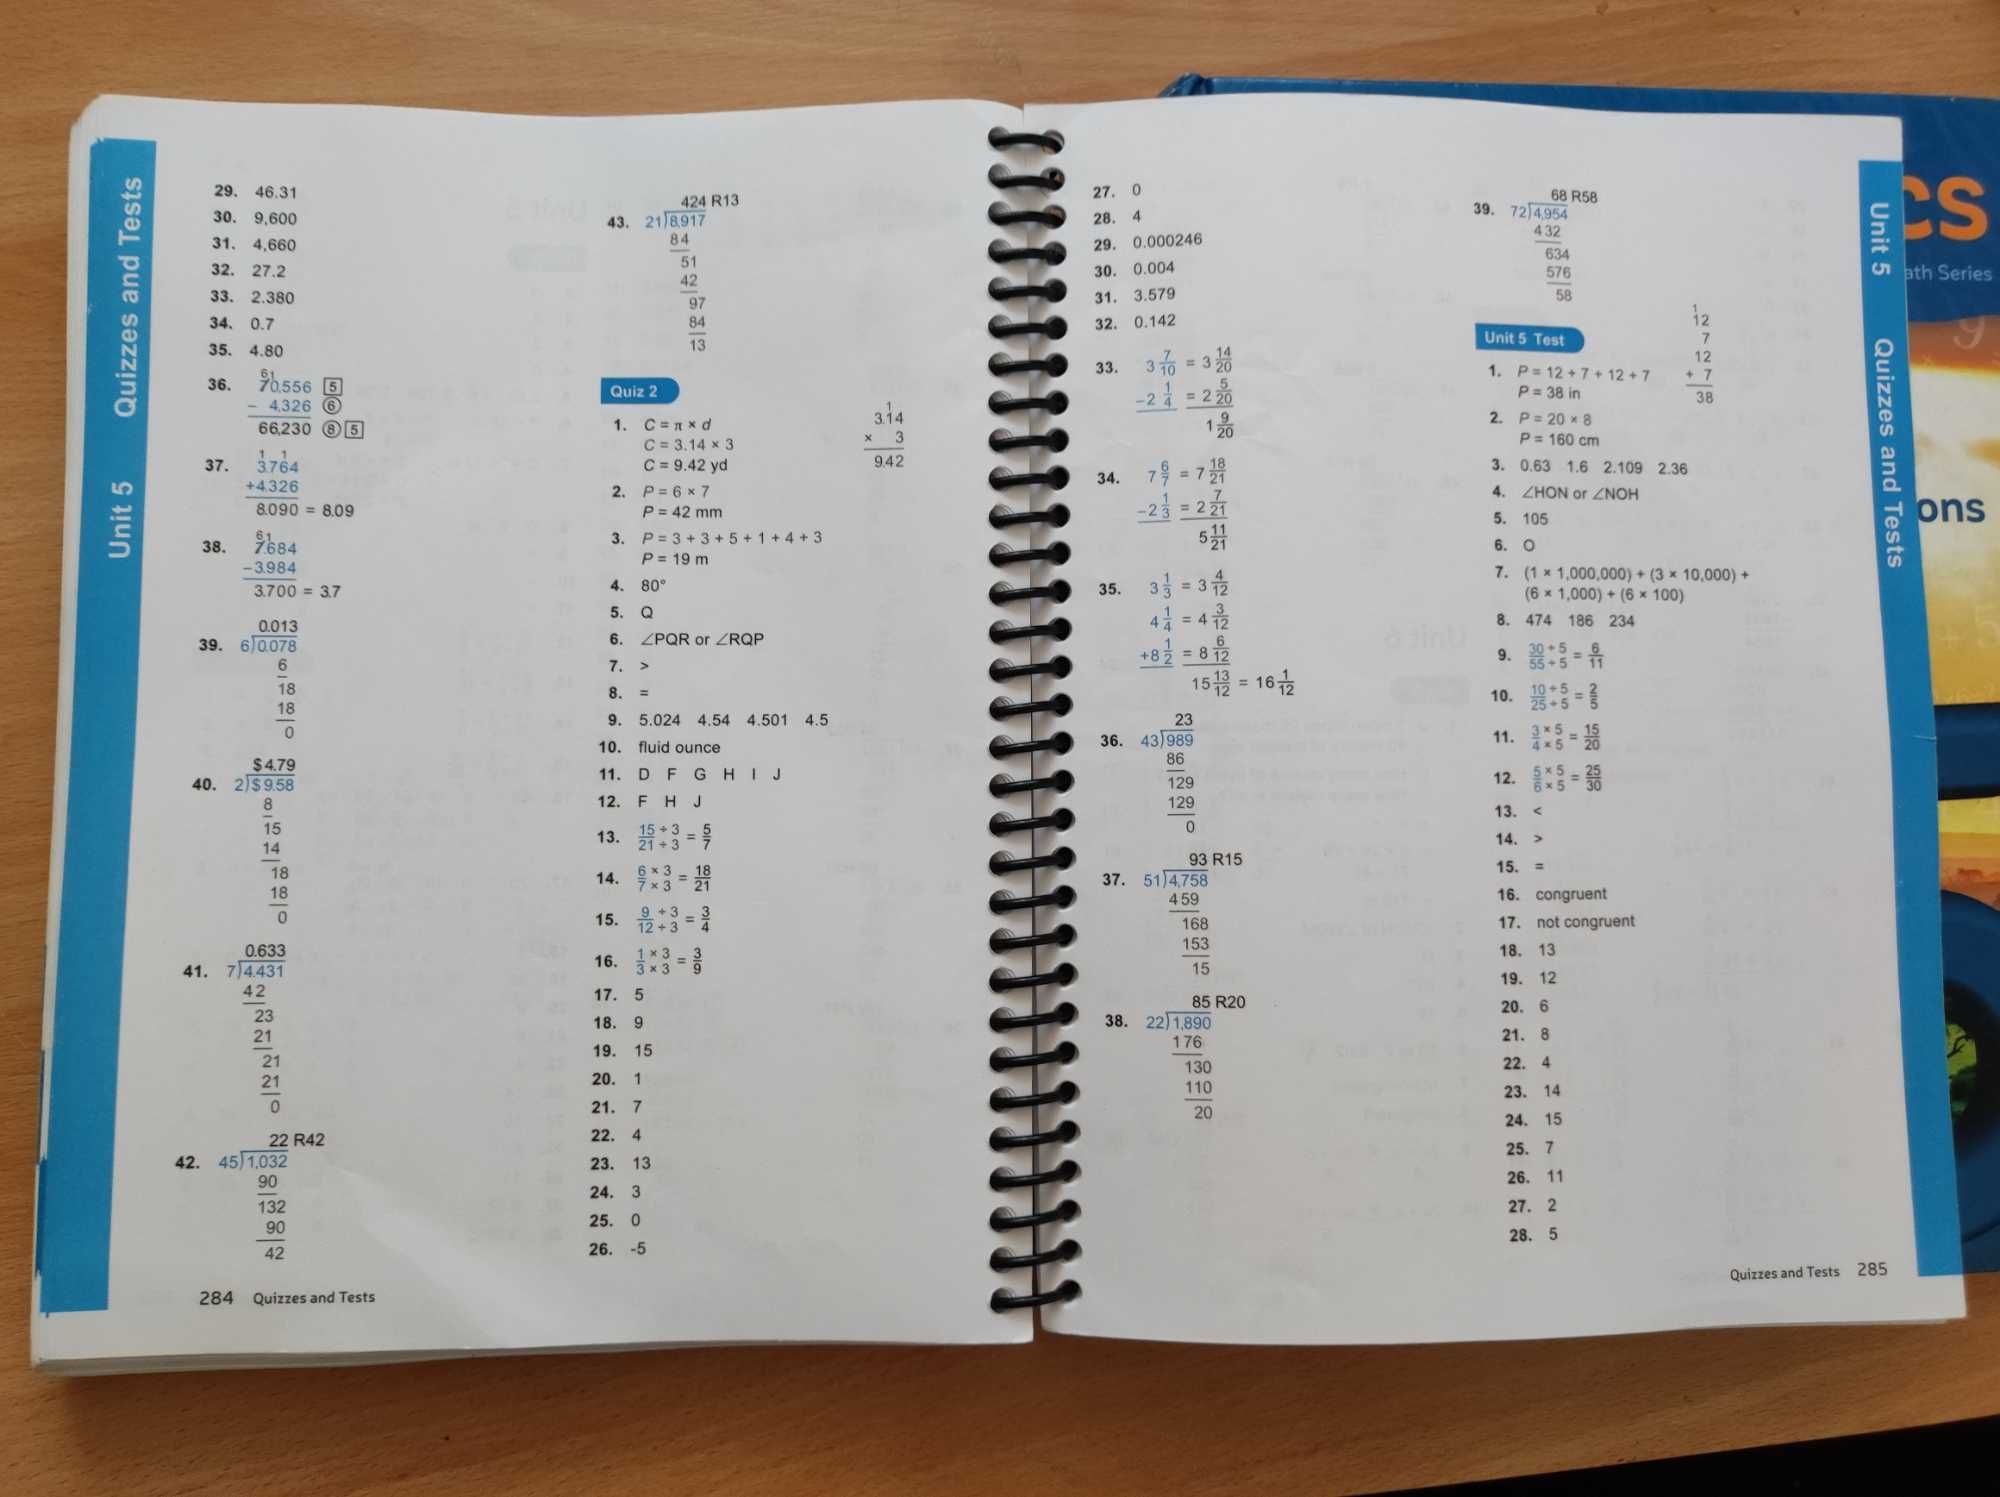 Unit 5 Quizzes and Tests
29. 46.31
30. 9,600
31. 4,660
32. 27.2
33. 2.380
34. 0.7
35. 4.80
6 1
36. 70,556 [5]
- 4,326 (6)
66,230 (8) [5]
1 1
37. 3.764
+4.326
8.090 = 8.09
6 1
38. 7.684
-3.984
3.700 = 3.7
0.013
39. 6)0.078
6
18
18
0
$4.79
40. 2)$9.58
8
15
14
18
18
0
0.633
41. 7)4.431
42
23
21
21
21
0
22 R42
42. 45)1,032
90
132
90
42
284 Quizzes and Tests
424 R13
43. 21)8,917
84
51
42
97
84
13
Quiz 2
1. C = π × d
C = 3.14 × 3
C = 9.42 yd
1
3.14
× 3
9.42
2. P = 6 × 7
P = 42 mm
3. P = 3 + 3 + 5 + 1 + 4 + 3
P = 19 m
4. 80°
5. Q
6. ∠PQR or ∠RQP
7. >
8. =
9. 5.024 4.54 4.501 4.5
10. fluid ounce
11. D F G H I J
12. F H J
13. 15/21 ÷ 3/÷ 3 = 5/7
14. 6/7 × 3/× 3 = 18/21
15. 9/12 ÷ 3/÷ 3 = 3/4
16. 1/3 × 3/× 3 = 3/9
17. 5
18. 9
19. 15
20. 1
21. 7
22. 4
23. 13
24. 3
25. 0
26. -5
27. 0
28. 4
29. 0.000246
30. 0.004
31. 3.579
32. 0.142
33. 3 7/10 = 3 14/20
-2 1/4 = 2 5/20
1 9/20
34. 7 6/7 = 7 18/21
-2 1/3 = 2 7/21
5 11/21
35. 3 1/3 = 3 4/12
4 1/4 = 4 3/12
+8 1/2 = 8 6/12
15 13/12 = 16 1/12
23
36. 43)989
86
129
129
0
93 R15
37. 51)4,758
459
168
153
15
85 R20
38. 22)1,890
176
130
110
20
68 R58
39. 72)4,954
432
634
576
58
Unit 5 Test
1. P = 12 + 7 + 12 + 7
P = 38 in
1
12
7
12
+ 7
38
2. P = 20 × 8
P = 160 cm
3. 0.63 1.6 2.109 2.36
4. ∠HON or ∠NOH
5. 105
6. O
7. (1 × 1,000,000) + (3 × 10,000) +
(6 × 1,000) + (6 × 100)
8. 474 186 234
9. 30/55 ÷ 5/÷ 5 = 6/11
10. 10/25 ÷ 5/÷ 5 = 2/5
11. 3/4 × 5/× 5 = 15/20
12. 5/6 × 5/× 5 = 25/30
13. <
14. >
15. =
16. congruent
17. not congruent
18. 13
19. 12
20. 6
21. 8
22. 4
23. 14
24. 15
25. 7
26. 11
27. 2
28. 5
Quizzes and Tests 285
Unit 5 Quizzes and Tests
cs
ath Series
ons